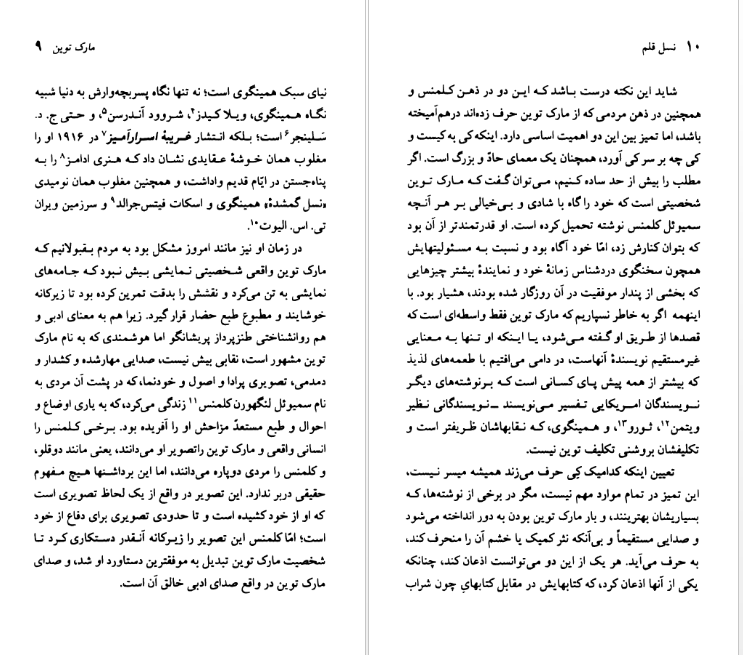 مارک توین ۹
نیای سبک همینگوی است؛ نه تنها نگاه پسربچه‌وارش به دنیا شبیه
نگاه همینگوی، ویلا کیدز۴، شروود آندرسن۵، و حتی ج. د.
سَلینجر۶ است؛ بلکه انتشار غریبهٔ اسرارآمیز۷ در ۱۹۱۶ او را
مغلوب همان خوشهٔ عقایدی نشان داد که هنری ادامز۸ را به
پناه‌جستن در ایّام قدیم واداشت، و همچنین مغلوب همان نومیدی
«نسل گمشدهٔ» همینگوی و اسکات فیتس‌جرالد۹ و سرزمین ویران
تی. اس. الیوت۱۰.
در زمان او نیز مانند امروز مشکل بود به مردم بقبولانیم که
مارک توین واقعی شخصیتی نمایشی بیش نبود که جامه‌های
نمایشی به تن می‌کرد و نقشش را بدقت تمرین کرده بود تا زیرکانه
خوشایند و مطبوع طبع حضار قرار گیرد. زیرا هم به معنای ادبی و
هم روانشناختی طنزپرداز پریشانگو اما هوشمندی که به نام مارک
توین مشهور است، نقابی بیش نیست، صدایی مهارشده و کشدار و
دمدمی، تصویری پرادا و اصول و خودنما، که در پشت آن مردی به
نام سمیوئل لنگهورن کلمنس۱۱ زندگی می‌کرد، که به یاری اوضاع و
احوال و طبع مستعدّ مزاحش او را آفریده بود. برخی کلمنس را
انسانی واقعی و مارک توین را تصویر او می‌دانند، یعنی مانند دوقلو،
و کلمنس را مردی دوپاره می‌دانند، اما این برداشتها هیچ مفهوم
حقیقی دربر ندارد. این تصویر در واقع از یک لحاظ تصویری است
که او از خود کشیده است و تا حدودی تصویری برای دفاع از خود
است؛ امّا کلمنس این تصویر را زیرکانه آنقدر دستکاری کرد تا
شخصیت مارک توین تبدیل به موفقترین دستاورد او شد، و صدای
مارک توین در واقع صدای ادبی خالق آن است.
۱۰ نسل قلم
شاید این نکته درست باشد که این دو در ذهن کلمنس و
همچنین در ذهن مردمی که از مارک توین حرف زده‌اند درهم‌آمیخته
باشد، اما تمیز بین این دو اهمیت اساسی دارد. اینکه کی به کیست و
کی چه بر سر کی آورد، همچنان یک معمای حادّ و بزرگ است. اگر
مطلب را بیش از حد ساده کنیم، می‌توان گفت که مارک توین
شخصیتی است که خود را گاه با شادی و بی‌خیالی بر هر آنچه
سمیوئل کلمنس نوشته تحمیل کرده است. او قدرتمندتر از آن بود
که بتوان کنارش زد، امّا خود آگاه بود و نسبت به مسئولیتهایش
همچون سخنگوی دردشناس زمانهٔ خود و نمایندهٔ بیشتر چیزهایی
که بخشی از پندار موفقیت در آن روزگار شده بودند، هشیار بود. با
اینهمه اگر به خاطر نسپاریم که مارک توین فقط واسطه‌ای است که
قصدها از طریق او گفته می‌شود، یا اینکه او تنها به معنایی
غیرمستقیم نویسندهٔ آنهاست، در دامی می‌افتیم با طعمه‌های لذیذ
که بیشتر از همه پیش پای کسانی است که بر نوشته‌های دیگر
نویسندگان امریکایی تفسیر می‌نویسند ــ نویسندگانی نظیر
ویتمن۱۲، ثورو۱۳، و همینگوی، که نقابهاشان ظریفتر است و
تکلیفشان بروشنی تکلیف توین نیست.
تعیین اینکه کدامیک کِی حرف می‌زند همیشه میسر نیست،
این تمیز در تمام موارد مهم نیست، مگر در برخی از نوشته‌ها، که
بسیاریشان بهترینند، و بار مارک توین بودن به دور انداخته می‌شود
و صدایی مستقیماً و بی‌آنکه نثر کمیک یا خشم آن را منحرف کند،
به حرف می‌آید. هر یک از این دو می‌توانست اذعان کند، چنانکه
یکی از آنها اذعان کرد، که کتابهایش در مقابل کتابهایِ چون شراب